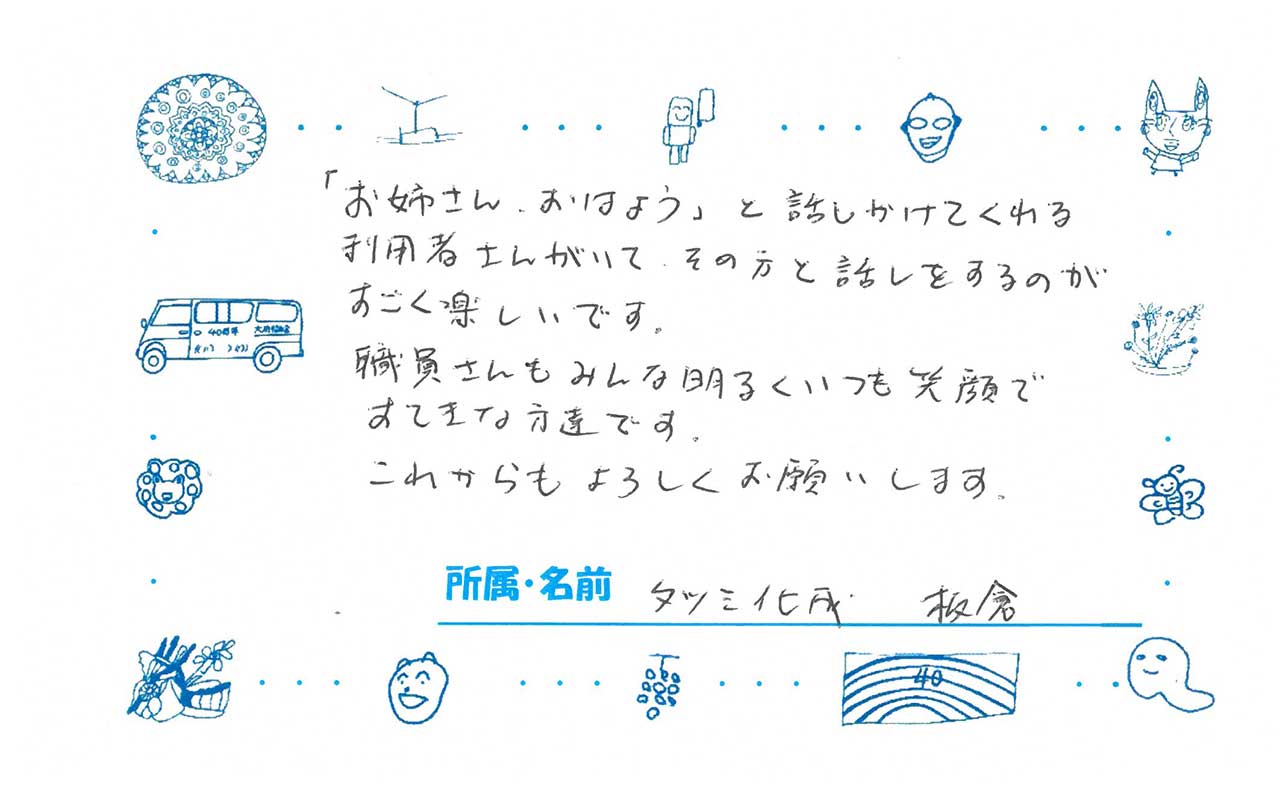 「お姉さん、おはよう」と話しかけてくれる
利用者さんがいて、その方と話しをするのが
すごく楽しいです。
職員さんもみんな明るくいつも笑顔で
すてきな方達です。
これからもよろしくお願いします。
40周年
所属・名前 タツミ化成 板倉
40